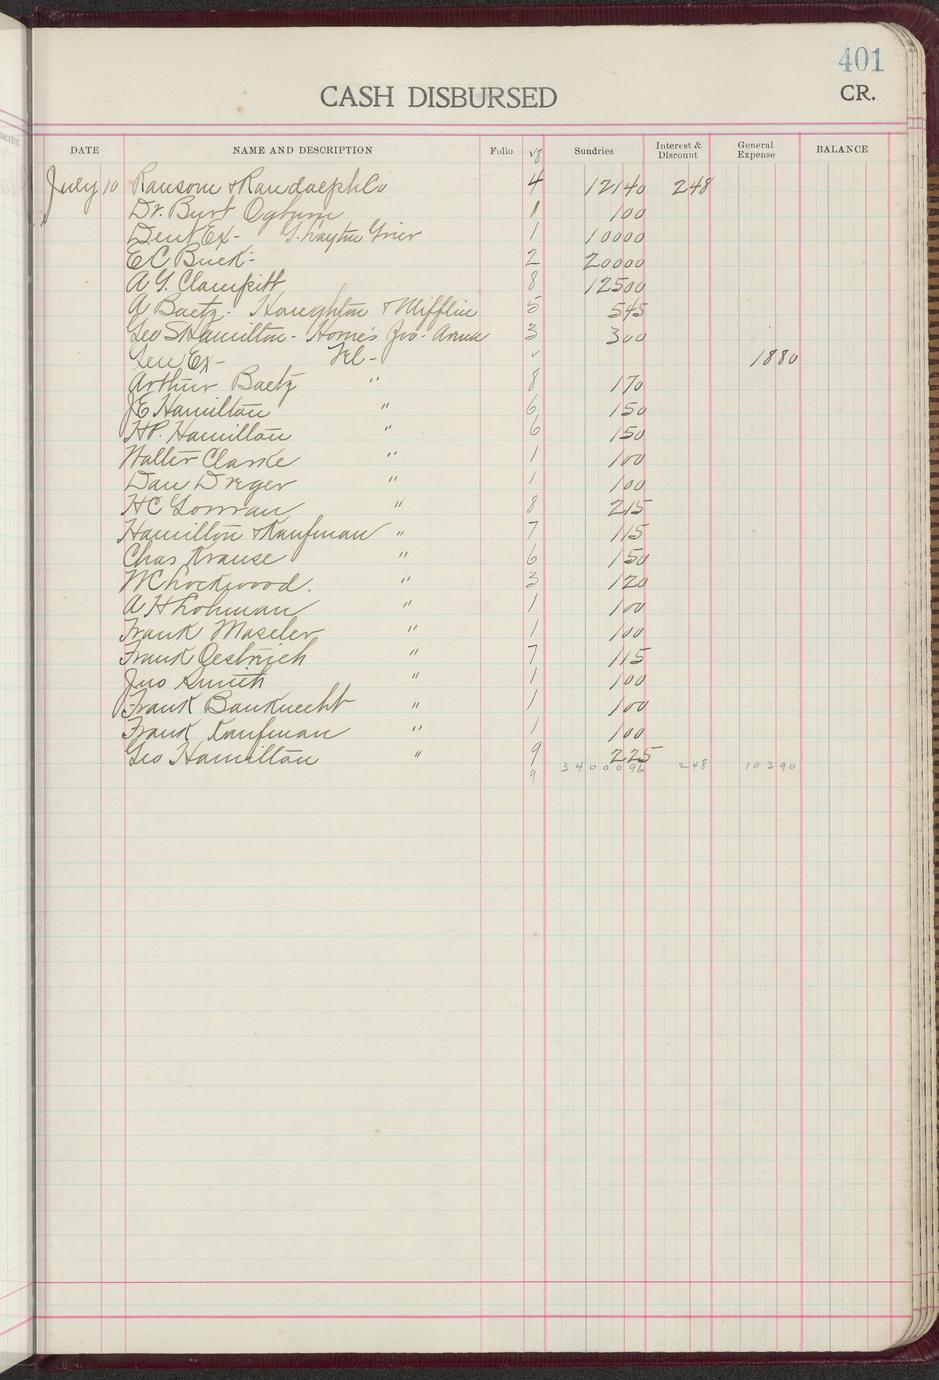 401
CASH DISBURSED CR.
DATE NAME AND DESCRIPTION Folio Sundries Interest & Discount General Expense BALANCE
July 10 Ransom & Randolph Co 4 12140 248
Dr. Burt Ogburn 1 100
Dent Ex- G. Layton Grier 1 10000
EC Buck- 2 20000
A G. Clampitt 8 12500
A Baetz- Houghton & Mifflin 5 545
Geo S Hamilton- Home's 3 300
Gen Ex- Tel- ✓ 1880
Arthur Baetz " 8 170
JE Hamilton " 6 150
HP. Hamilton " 6 150
Walter Clarke " 1 100
Dan Dreger " 1 100
HC Gorman " 8 215
Hamilton & Kaufman " 7 115
Chas Krause " 6 150
WC Lockwood. " 3 120
A H Lohman " 1 100
Frank Maseler " 1 100
Frank Oestrich " 7 115
Jno Smith " 1 100
Frank Banknecht " 1 100
Frank Kaufman " 1 100
Geo Hamilton " 9 225
9 3400096 248 10390